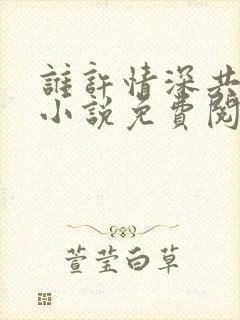 誰許情深共
小說免費閱
萱莹白草